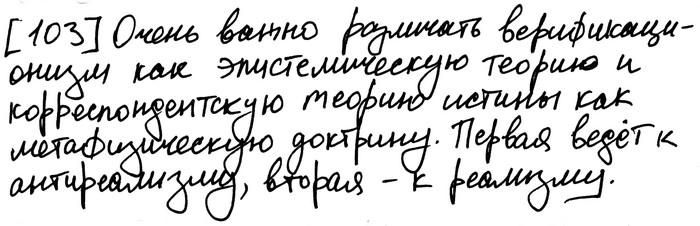 [103] Очень важно различать верификаци-
онизм как эпистемическую теорию и
корреспондентскую теорию истины как
метафизическую доктрину. Первая ведёт к
антиреализму, вторая – к реализму.